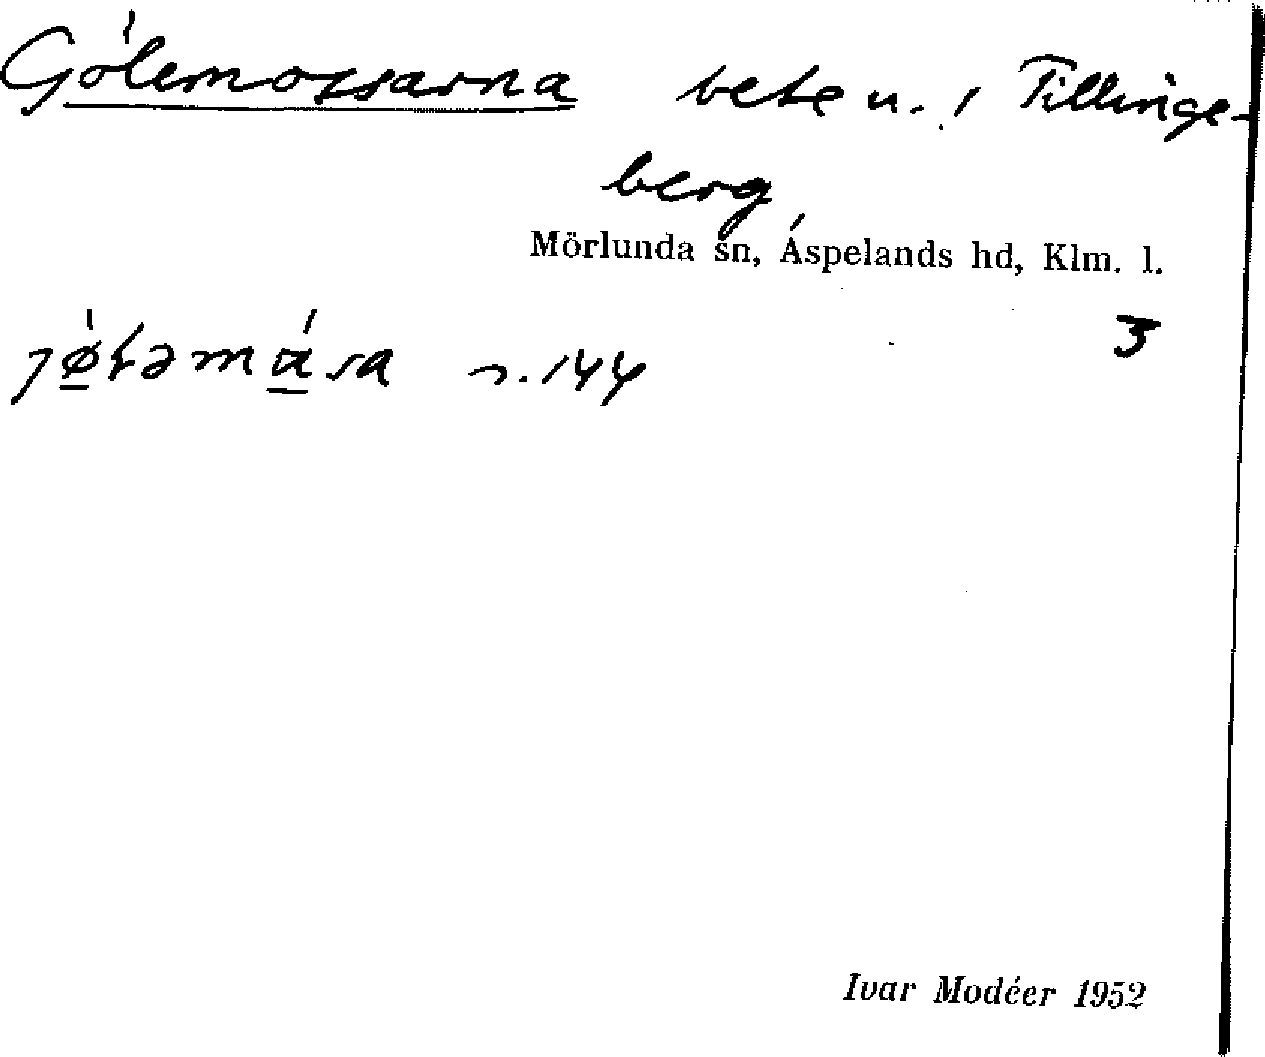 Gölemossarna bete u. 1 Tillinge-
berg
Mörlunda sn, Áspelands hd, Klm. l.
3
s. 144
Ivar Modéer 1952